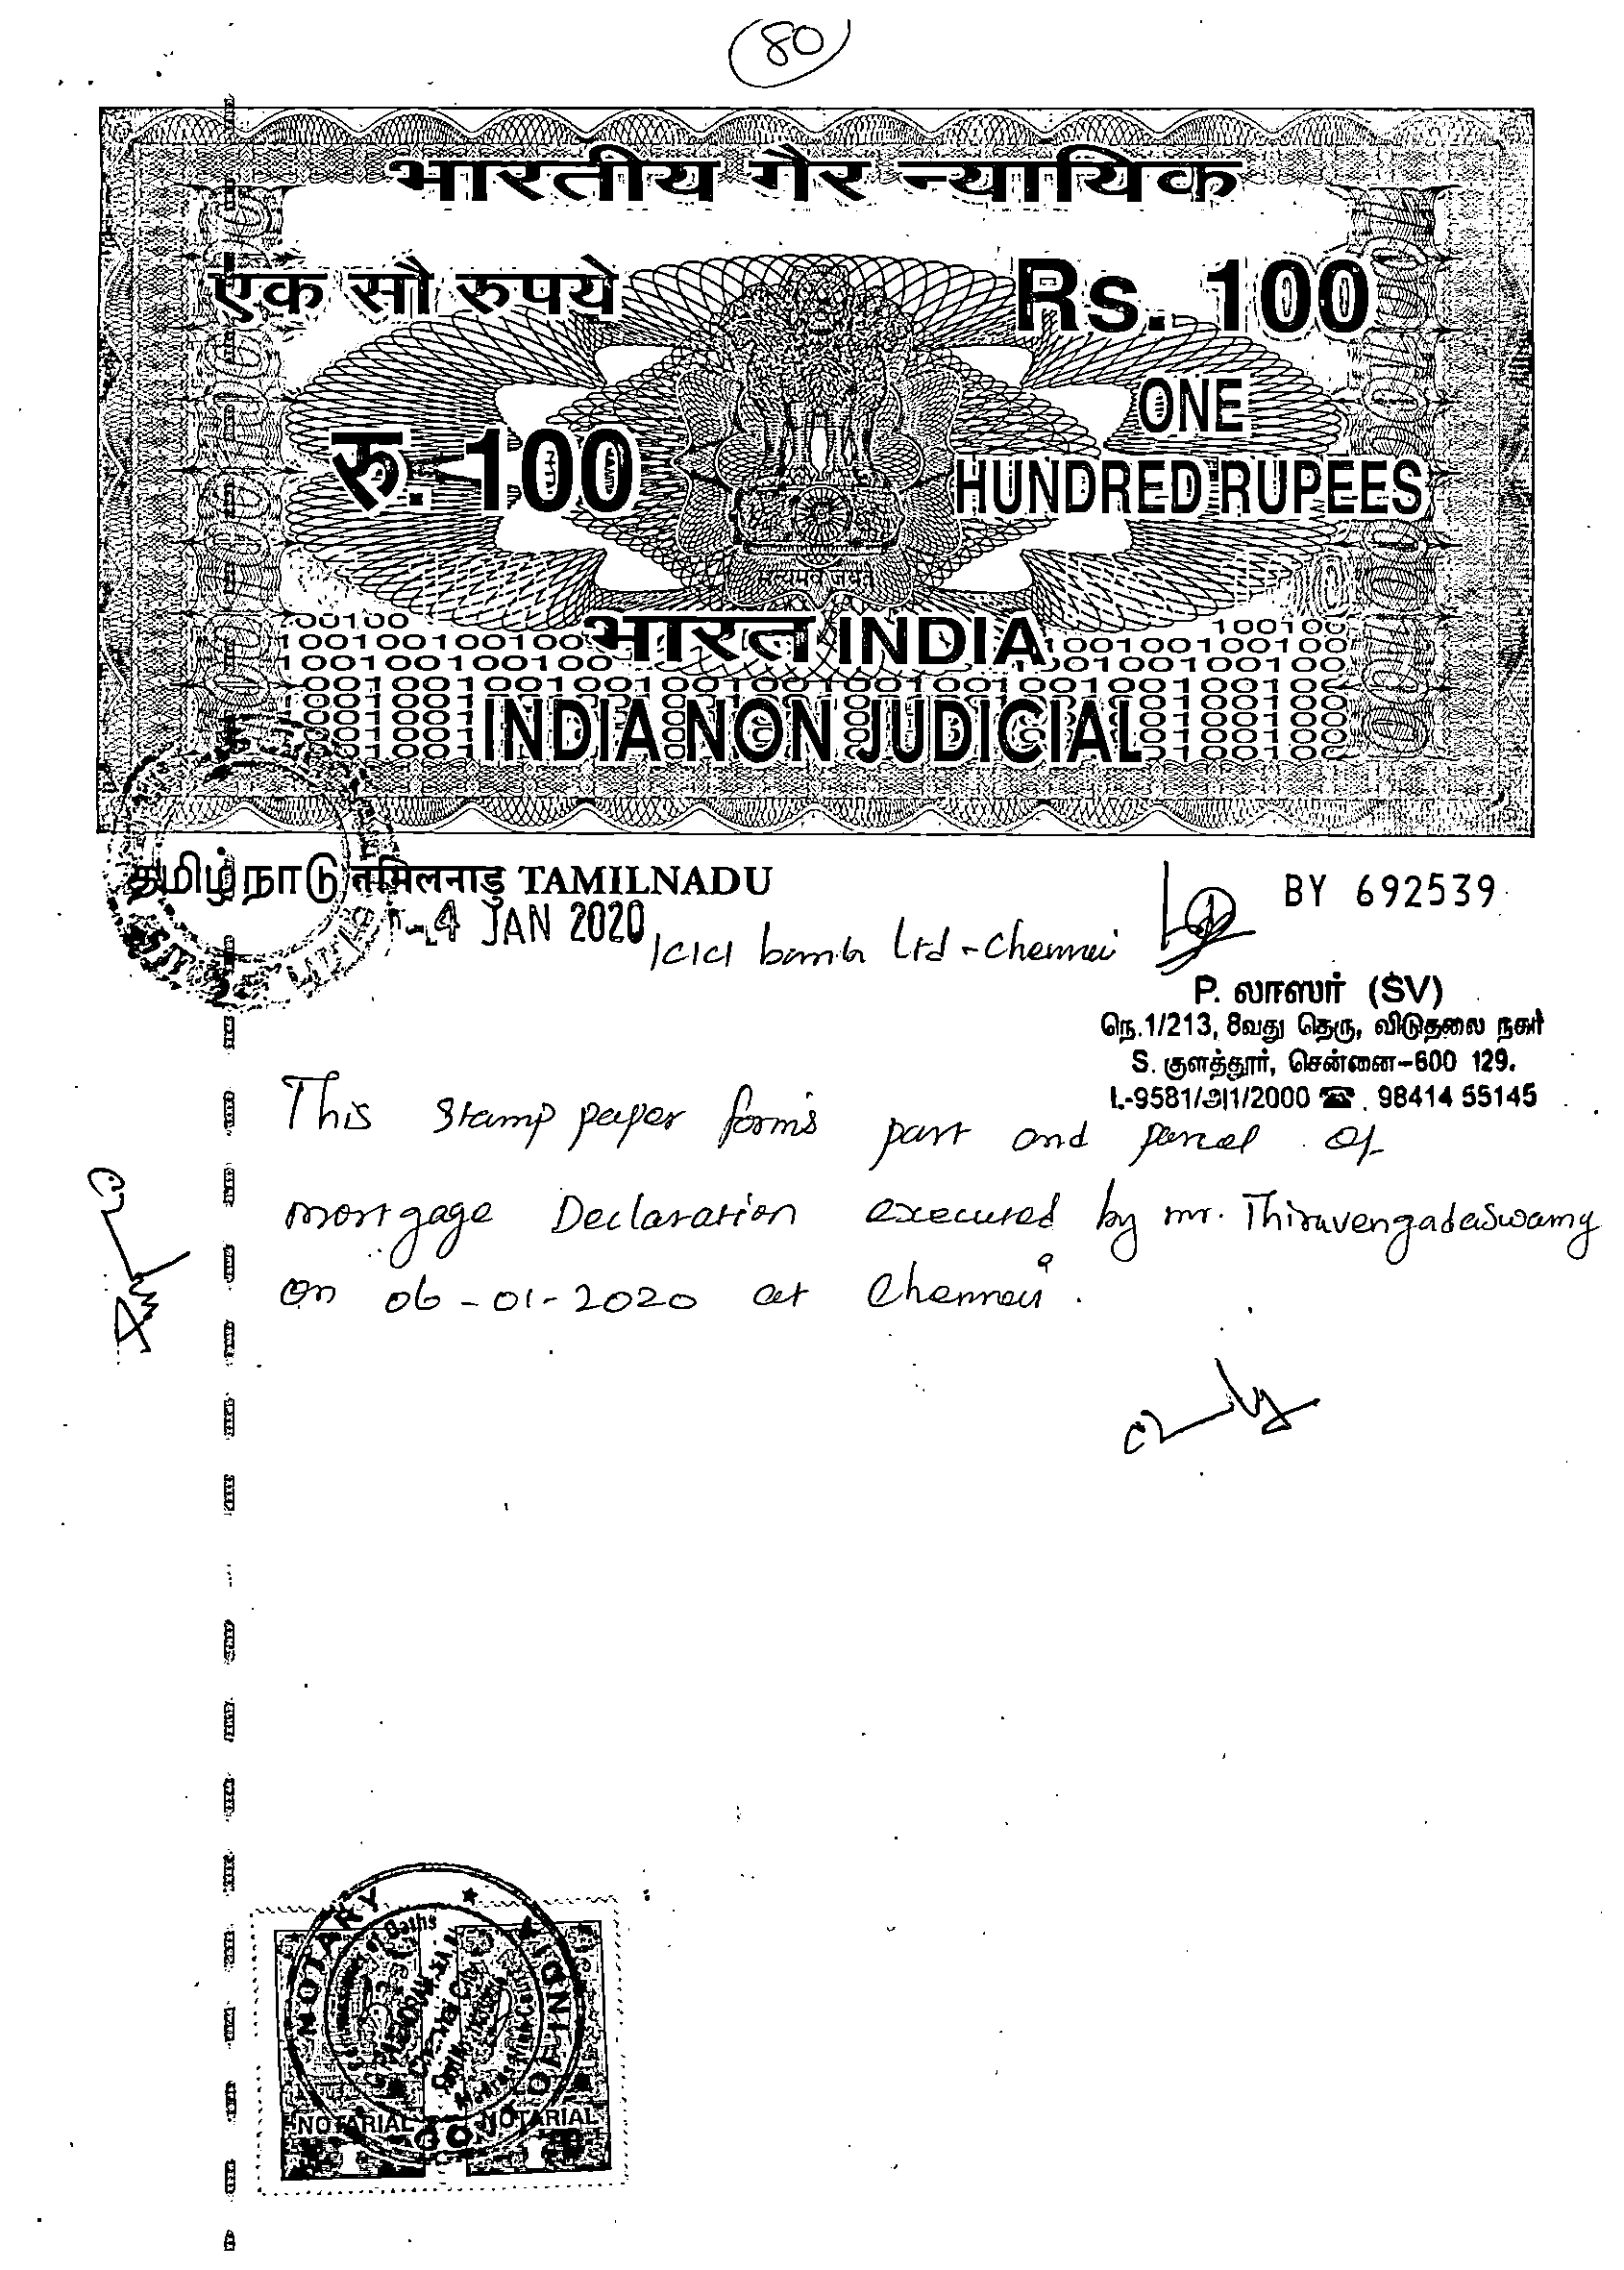 80
भारतीय गैर न्यायिक
एक सौ रुपये
Rs. 100
रु. 100
ONE
HUNDRED RUPEES
सत्यमेव जयते
भारत INDIA
INDIA NON JUDICIAL
தமிழ்நாடு तमिलनाडु TAMILNADU
BY 692539
-4 JAN 2020
ICICI bank Ltd - Chennai
P. லாஸர் (SV)
நெ.1/213, 8வது தெரு, விடுதலை நகர்
S. குளத்தூர், சென்னை-600 129.
L-9581/அ1/2000 ☎ 98414 55145
This stamp paper forms part and parcel of
mortgage Declaration executed by mr. Thiruvengadaswamy
on 06-01-2020 at Chennai.
NOTARY
Oaths
INDIA
NOTARIAL
NOTARIAL